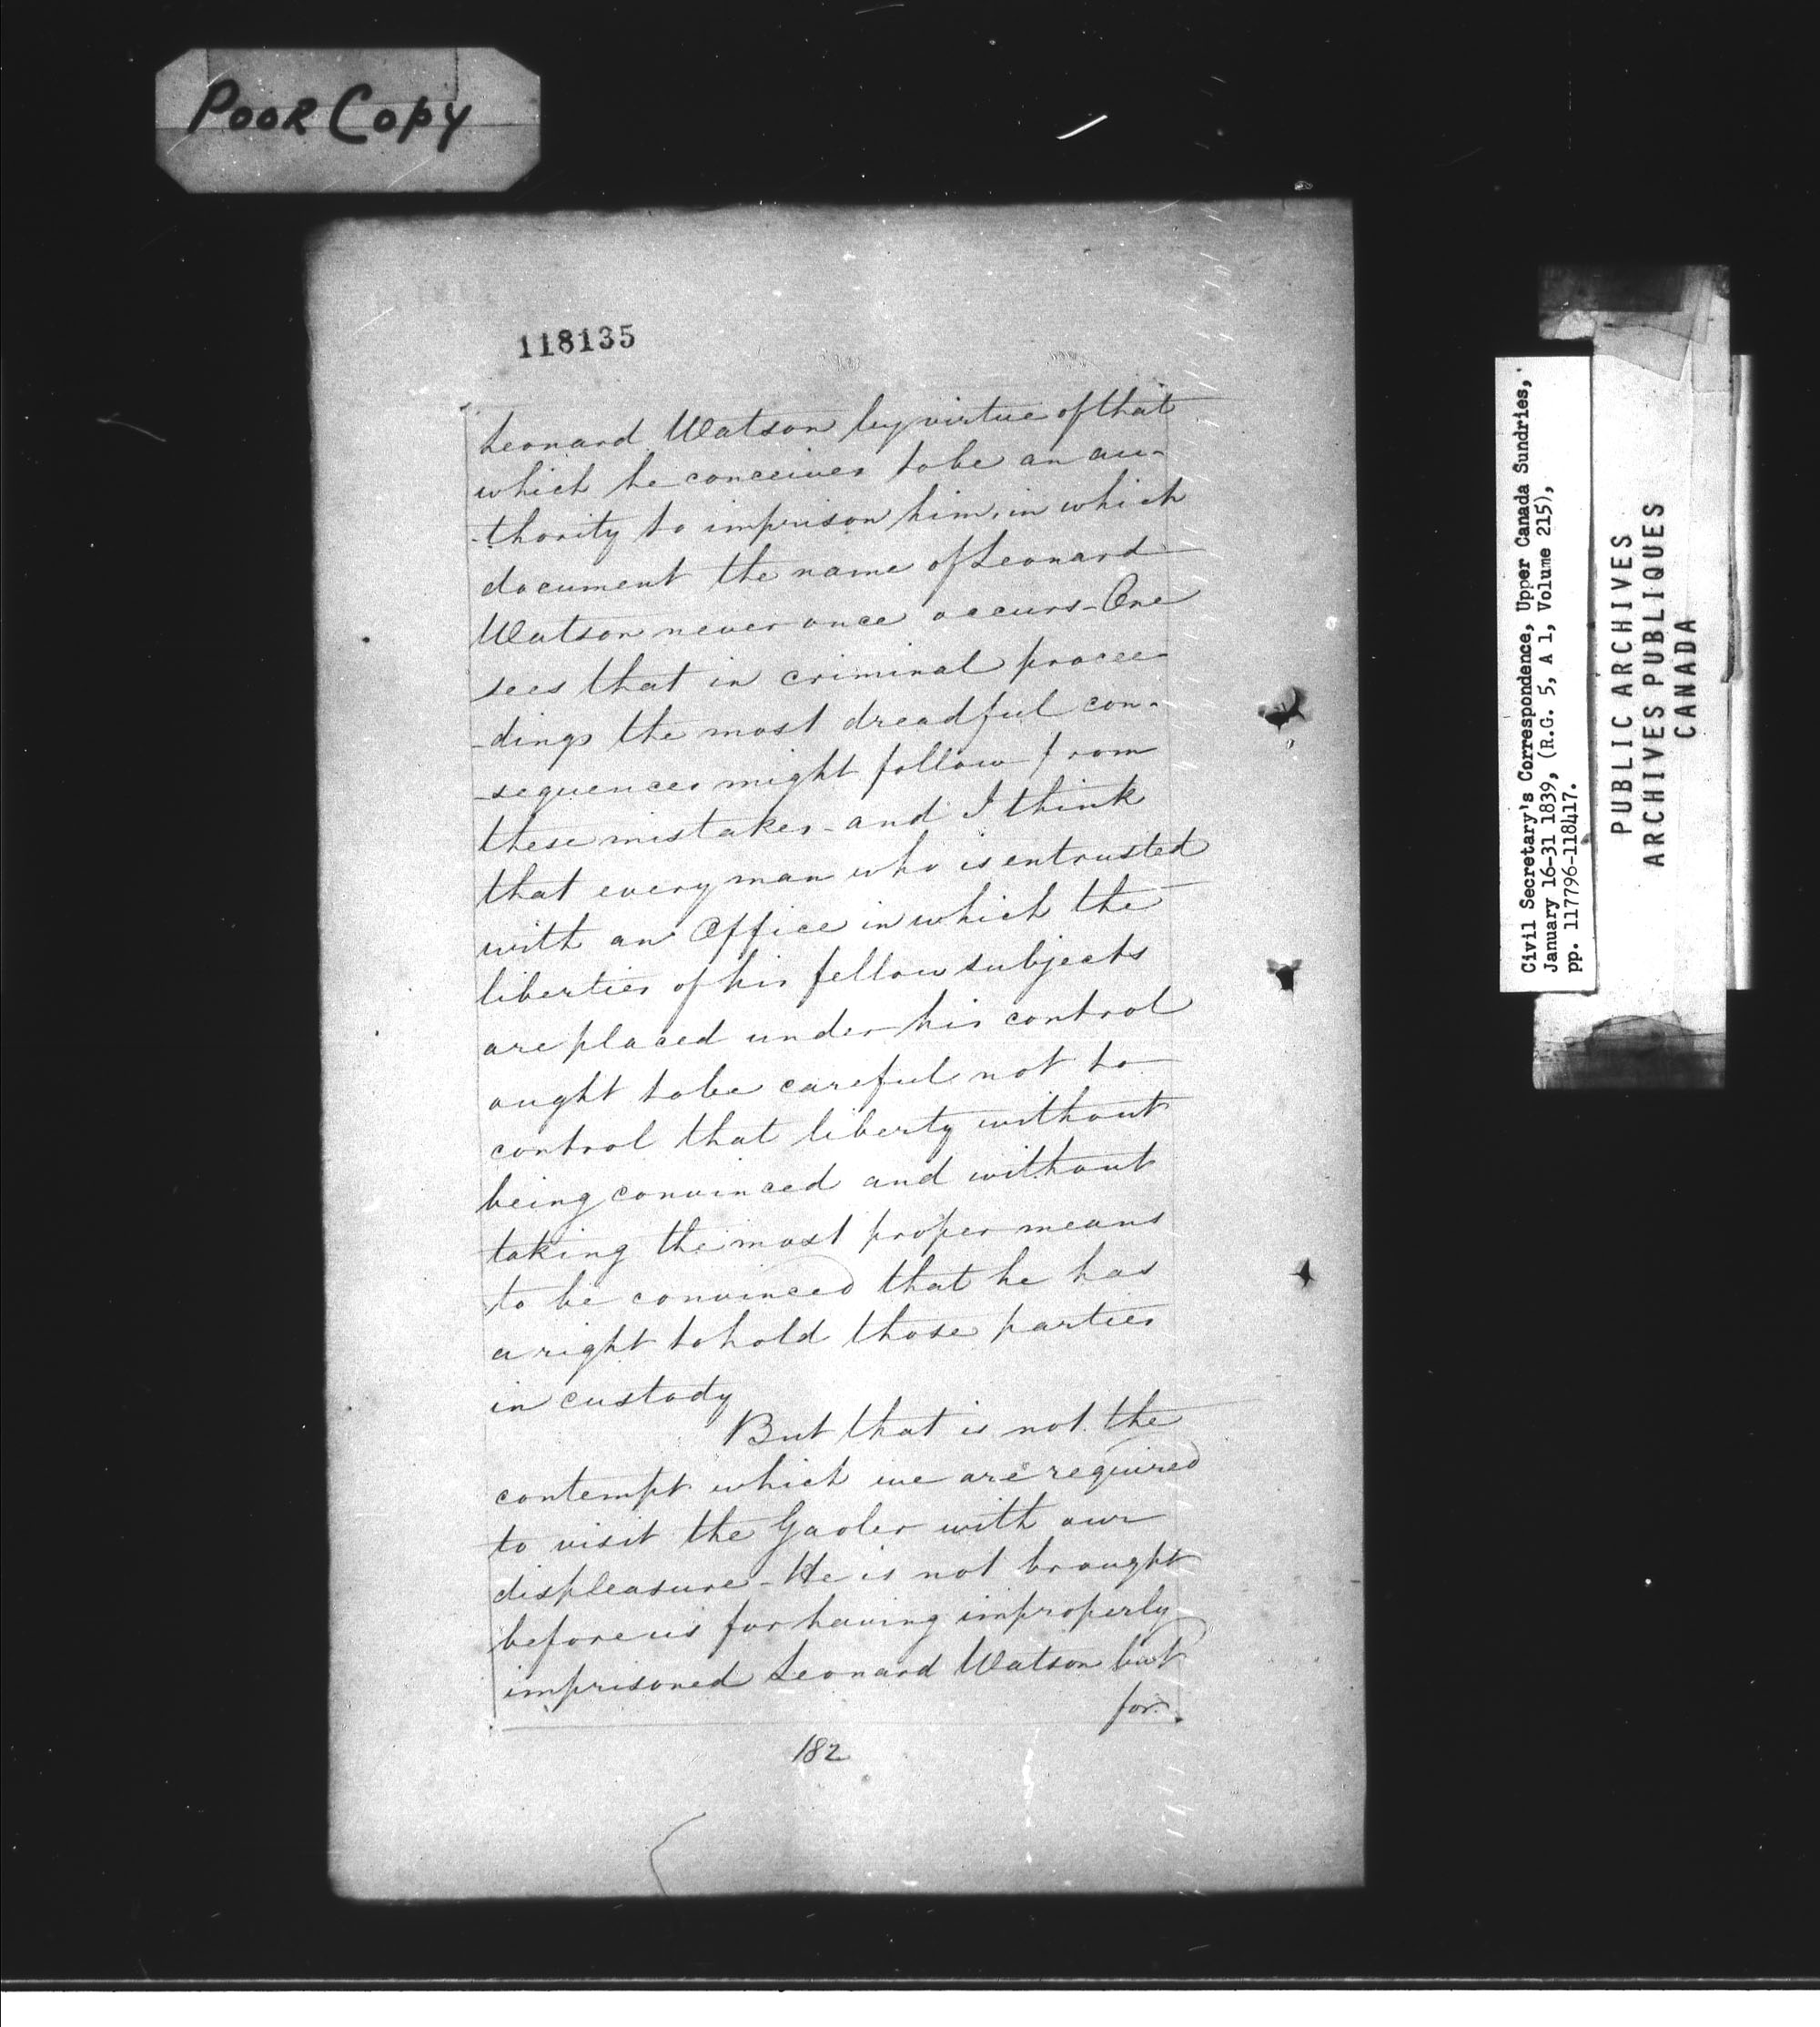 Poor Copy
118135
Leonard Watson by virtue of that
which he conceives to be an au-
-thority to imprison him, in which
document the name of Leonard
Watson never once occurs - One
sees that in criminal procee-
-dings the most dreadful con-
-sequences might follow from
these mistakes - and I think
that every man who is entrusted
with an Office in which the
liberties of his fellow subjects
are placed under his control
ought to be careful not to
control that liberty without
being convinced and without
taking the most proper means
to be convinced that he has
a right to hold those parties
in custody
But that is not the
contempt which we are required
to visit the Gaoler with our
displeasure - He is not brought
before us for having improperly
imprisoned Leonard Watson but
for
182
Civil Secretary's Correspondence, Upper Canada Sundries,
January 16-31 1839, (R.G. 5, A 1, Volume 215),
pp. 117796-118417.
PUBLIC ARCHIVES
ARCHIVES PUBLIQUES
CANADA